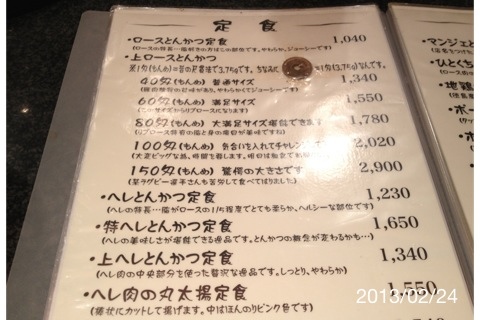 定食
・ロースとんかつ定食 1,040
(ロースの特長…脂好きの方はこの部位です。やわらか、ジューシーです)
・上ロースとんかつ
40匁(もんめ) 普通サイズ 1,340
60匁(もんめ) 満足サイズ 1,550
80匁(もんめ) 大満足サイズ堪能できます 1,780
100匁(もんめ) 気合いを入れてチャレンジ 2,020
150匁(もんめ) 驚愕の大きさです 2,900
・ヘレとんかつ定食 1,230
(ヘレの特長…脂がロースの1/5程度でとても柔らか、ヘルシーな部位です)
・特ヘレとんかつ定食 1,650
(ヘレの美味しさが堪能できる逸品です。とんかつの概念が変わるかも…)
・上ヘレとんかつ定食 1,340
(ヘレ肉の中央部分を使った贅沢な逸品です。しっとり、やわらか)
・ヘレ肉の丸太揚定食 1,550
(棒状にカットして揚げます。中はほんのりピンク色です)
・マンジェと
・ひとくち
・地鶏
2013/02/24